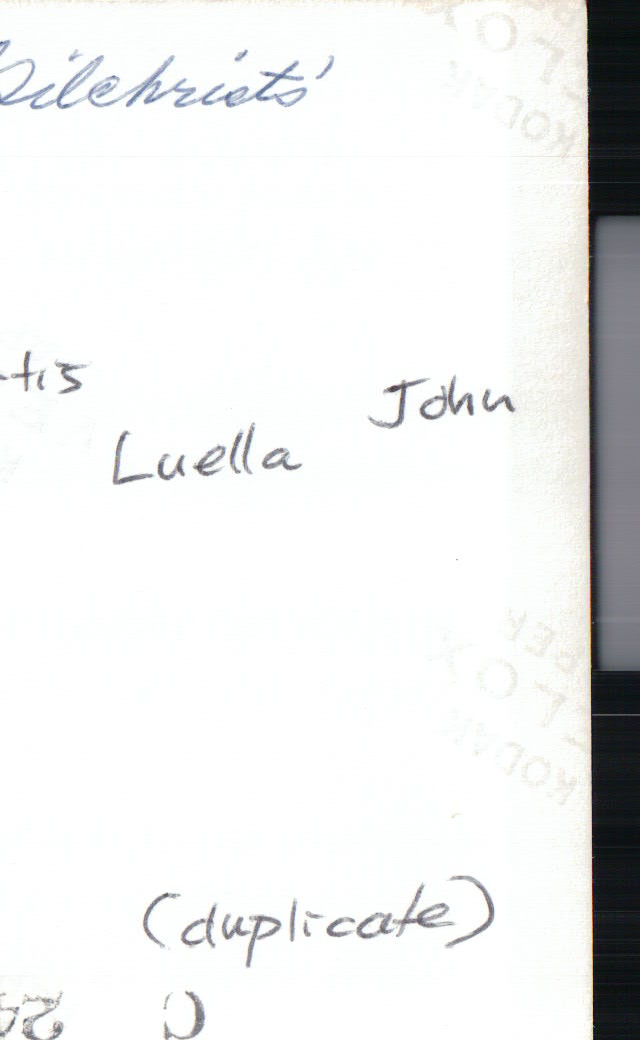 Gilchrists'
-tis
John
Luella
(duplicate)
C
KODAK
VELOX
PAPER